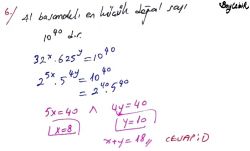 6-) 41 basamaklı en küçük doğal sayı
10⁴⁰ d.r.
32ˣ.625ʸ=10⁴⁰
2⁵ˣ.5⁴ʸ=10⁴⁰
=2⁴⁰.5⁴⁰
5x=40 ∧ 4y=40
x=8 y=10
x+y=18// CEVAP:D